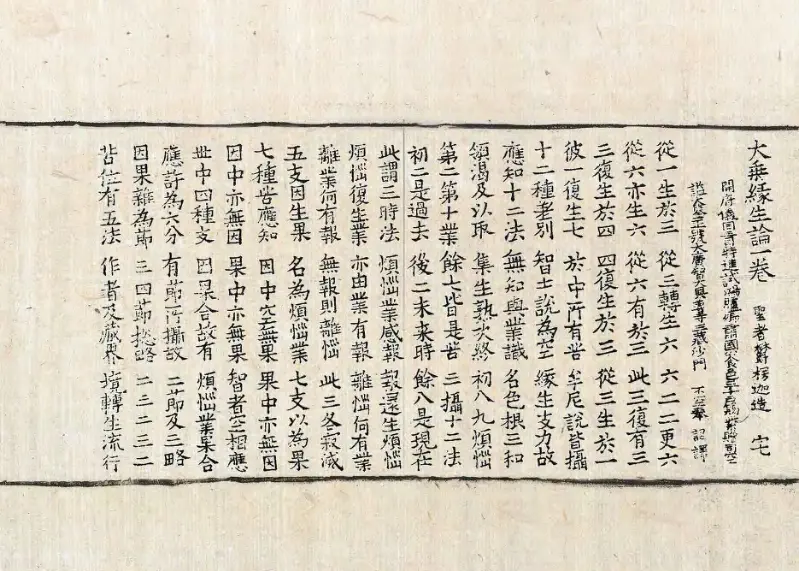 大乘緣生論一卷 聖者欝楞迦造 宅
開府儀同三司特進試鴻臚卿肅國公食邑三千戶賜紫贈司空
謚大號大廣智大興善寺三藏沙門 不空奉 詔譯
從一生於三 從三轉生六 六二二更六
從六亦生六 從六有於三 此三復有三
三復生於四 四復生於三 從三生於一
彼一復生七 於中所有苦 牟尼說皆攝
十二種差別 智士說為空 緣生支力故
應知十二法 無知與業識 名色根三和
領渴及以取 集生熟次終 初八九煩惱
第二第十業 餘七皆是苦 三攝十二法
初二是過去 後二未来時 餘八是現在
此謂三時法 煩惱業感報 報還生煩惱
煩惱復生業 亦由業有報 離惱何有業
離業何有報 無報則離惱 此三各寂滅
五支因生果 名為煩惱業 七支以為果
七種苦應知 因中空無果 果中亦無因
因中亦無因 果中亦無果 智者空相應
世中四種支 因果合故有 煩惱業果合
應許為六分 有節所攝故 二節及三略
因果雜為節 三四節惣略 二三二三二
苦位有五法 作者及藏界 境轉生流行